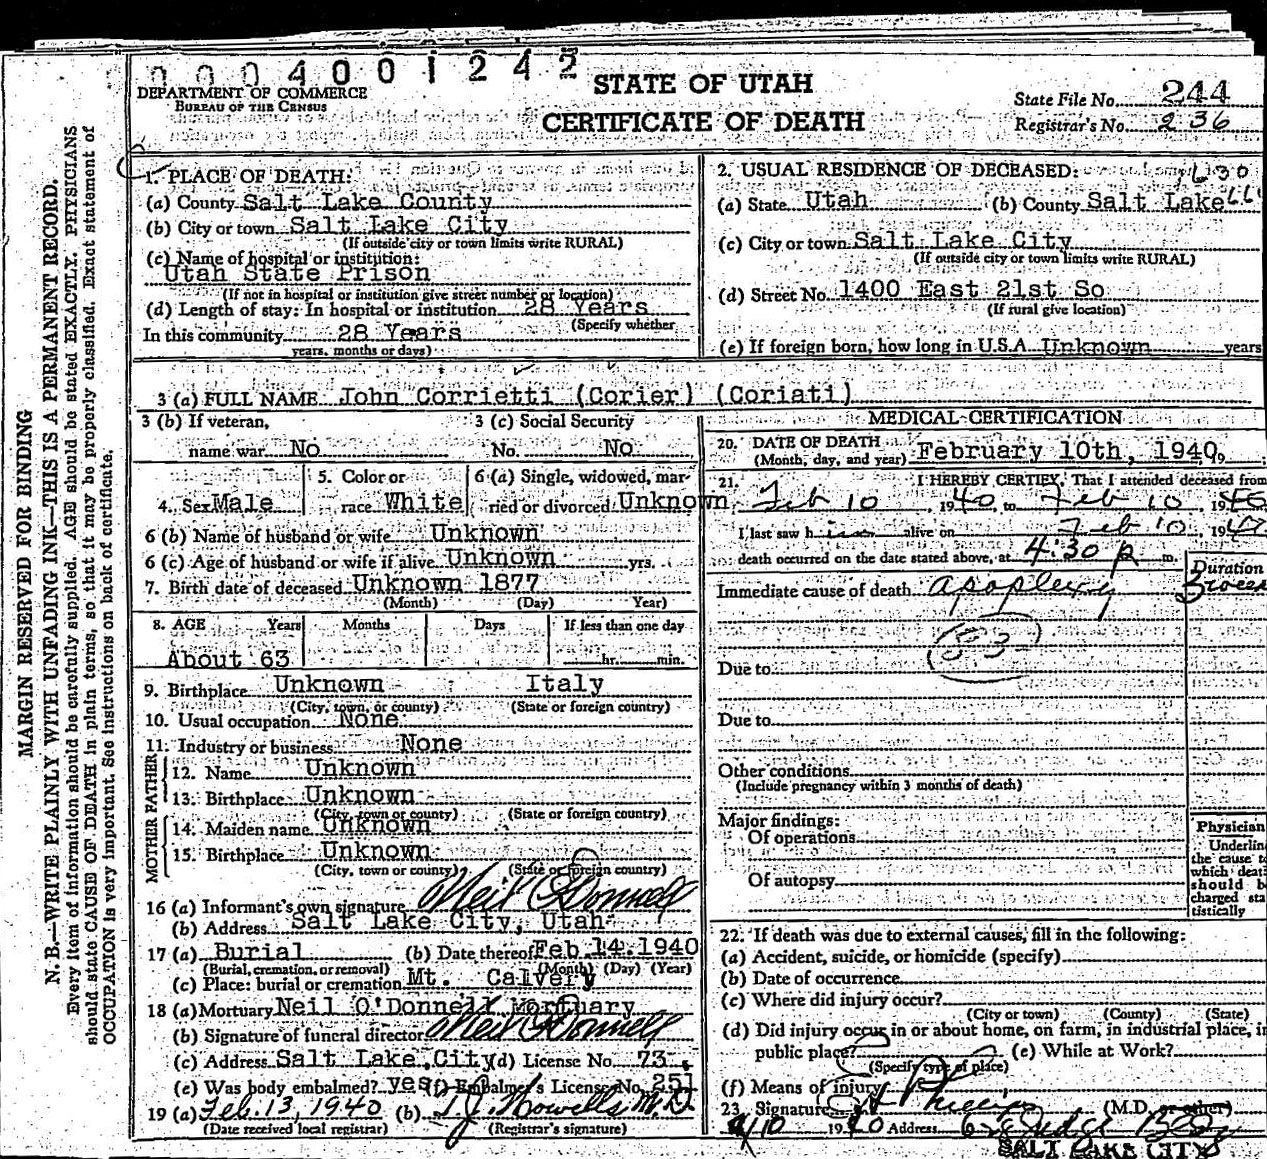 0004001242
DEPARTMENT OF COMMERCE
BUREAU OF THE CENSUS
STATE OF UTAH
CERTIFICATE OF DEATH
State File No. 244
Registrar's No. 236
MARGIN RESERVED FOR BINDING
N. B.—WRITE PLAINLY WITH UNFADING INK—THIS IS A PERMANENT RECORD.
Every item of information should be carefully supplied. AGE should be stated EXACTLY. PHYSICIANS
should state CAUSE OF DEATH in plain terms, so that it may be properly classified. Exact statement of
OCCUPATION is very important. See instructions on back of certificate.
1. PLACE OF DEATH:
(a) County Salt Lake County
(b) City or town Salt Lake City
(If outside city or town limits write RURAL)
(c) Name of hospital or institution:
Utah State Prison
(If not in hospital or institution give street number or location)
(d) Length of stay: In hospital or institution 28 Years
(Specify whether
In this community 28 Years
years, months or days)
2. USUAL RESIDENCE OF DECEASED:
(a) State Utah (b) County Salt Lake
(c) City or town Salt Lake City
(If outside city or town limits write RURAL)
(d) Street No. 1400 East 21st So
(If rural give location)
(e) If foreign born, how long in U.S.A. Unknown years
3 (a) FULL NAME John Corrietti (Corier) (Coriati)
3 (b) If veteran,
name war No
3 (c) Social Security
No. No
4. Sex Male
5. Color or
race White
6 (a) Single, widowed, mar-
ried or divorced Unknown
6 (b) Name of husband or wife Unknown
6 (c) Age of husband or wife if alive Unknown yrs.
7. Birth date of deceased Unknown 1877
(Month) (Day) Year)
8. AGE Years Months Days If less than one day
About 63 hr. min.
9. Birthplace Unknown Italy
(City, town, or county) (State or foreign country)
10. Usual occupation None
11. Industry or business None
FATHER
12. Name Unknown
13. Birthplace Unknown
(City, town or county) (State or foreign country)
MOTHER
14. Maiden name Unknown
15. Birthplace Unknown
(City, town or county) (State or foreign country)
16 (a) Informant's own signature Neil O'Donnell
(b) Address Salt Lake City, Utah
17 (a) Burial (b) Date thereof Feb 14 1940
(Burial, cremation, or removal) (Month) (Day) (Year)
(c) Place: burial or cremation Mt. Calvery
18 (a) Mortuary Neil O'Donnell Mortuary
(b) Signature of funeral director Neil O'Donnell
(c) Address Salt Lake City (d) License No. 73
(e) Was body embalmed? yes (f) Embalmer's License No. 251
19 (a) Feb. 13, 1940 (b) T.J. Howells M.D.
(Date received local registrar) (Registrar's signature)
MEDICAL CERTIFICATION
20. DATE OF DEATH
(Month, day, and year) February 10th, 1940
21. I HEREBY CERTIFY, That I attended deceased from
Feb 10, 1940, to Feb 10, 1940
I last saw him alive on Feb 10, 19
death occurred on the date stated above, at 4:30 p m.
Duration
Immediate cause of death apoplexy
83
Due to
Due to
Other conditions
(Include pregnancy within 3 months of death)
Major findings:
Of operations
Of autopsy
Physician
Underlin
the cause to
which deat
should b
charged sta
tistically
22. If death was due to external causes, fill in the following:
(a) Accident, suicide, or homicide (specify)
(b) Date of occurrence
(c) Where did injury occur?
(City or town) (County) (State)
(d) Did injury occur in or about home, on farm, in industrial place, in
public place? (e) While at Work?
(Specify type of place)
(f) Means of injury
23. Signature (M.D. or other)
/10 1940 Address Judge Bldg
SALT LAKE CITY